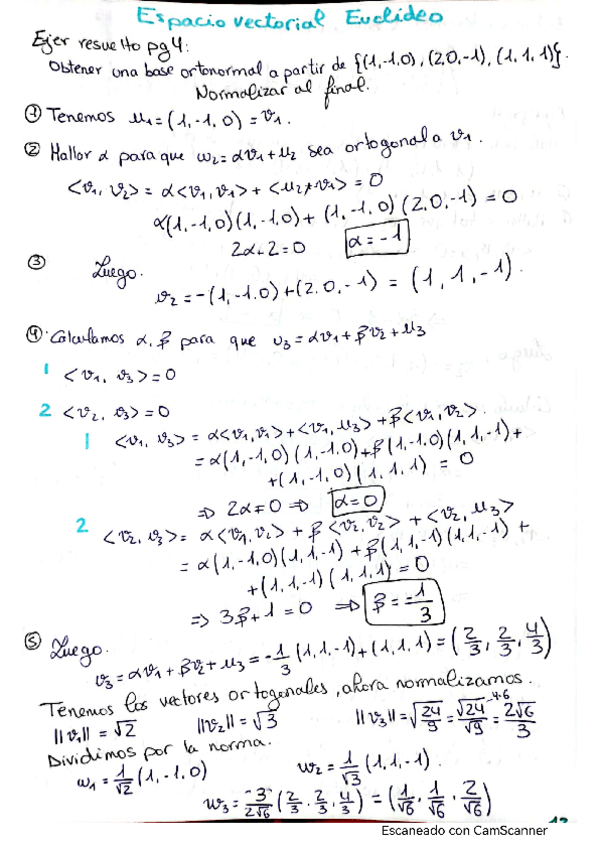 Espacio vectorial Euclideo
Ejer resuelto pg 4:
Obtener una base ortonormal a partir de {(1,-1,0), (2,0,-1), (1,1,1)}.
Normalizar al final.
① Tenemos u₁=(1,-1,0)=v₁.
② Hallar α para que w₂=αv₁+u₂ sea ortogonal a v₁.
<v₁, v₂>= α<v₁,v₁>+<u₂,v₁>=0
α(1,-1,0)(1,-1,0)+(1,-1,0)(2,0,-1)=0
2α+2=0 α=-1
③ Luego.
v₂=-(1,-1,0)+(2,0,-1)=(1,1,-1).
④ Calculamos α, β para que v₃=αv₁+βv₂+u₃
1 <v₁, v₃>=0
2 <v₂, v₃>=0
1 <v₁, v₃>=α<v₁,v₁>+<v₁,u₃>+β<v₁,v₂>.
=α(1,-1,0)(1,-1,0)+β(1,-1,0)(1,1,-1)+
+(1,-1,0)(1,1,1)=0
⇒ 2α=0 ⇒ α=0
2 <v₂, v₃>= α<v₁,v₂>+β<v₂,v₂>+<v₂,u₃>
=α(1,-1,0)(1,1,-1)+β(1,1,-1)(1,1,-1)+
+(1,1,-1)(1,1,1)=0
⇒ 3β+1=0 ⇒ β=-1/3
⑤ Luego.
v₃=αv₁+βv₂+u₃=-1/3(1,1,-1)+(1,1,1)=(2/3, 2/3, 4/3)
Tenemos los vectores ortogonales, ahora normalizamos.
||v₁||=√2 ||v₂||=√3 ||v₃||=√(24/9)=√24/√9=2√6/3
4·6
Dividimos por la norma.
w₁=1/√2(1,-1,0) w₂=1/√3(1,1,-1).
w₃=3/2√6(2/3, 2/3, 4/3)=(1/√6, 1/√6, 2/√6)
Escaneado con CamScanner